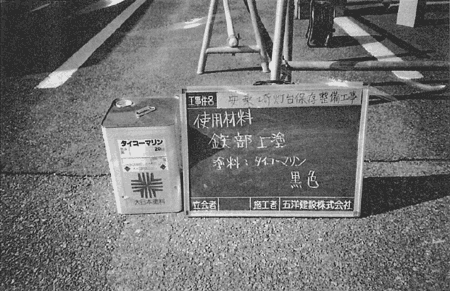 工事件名 灯台保存整備工事
使用材料
鉄部上塗
塗料：タイコーマリン
黒色
立会者 施工者 五洋建設株式会社
タイコーマリン
大日本塗料